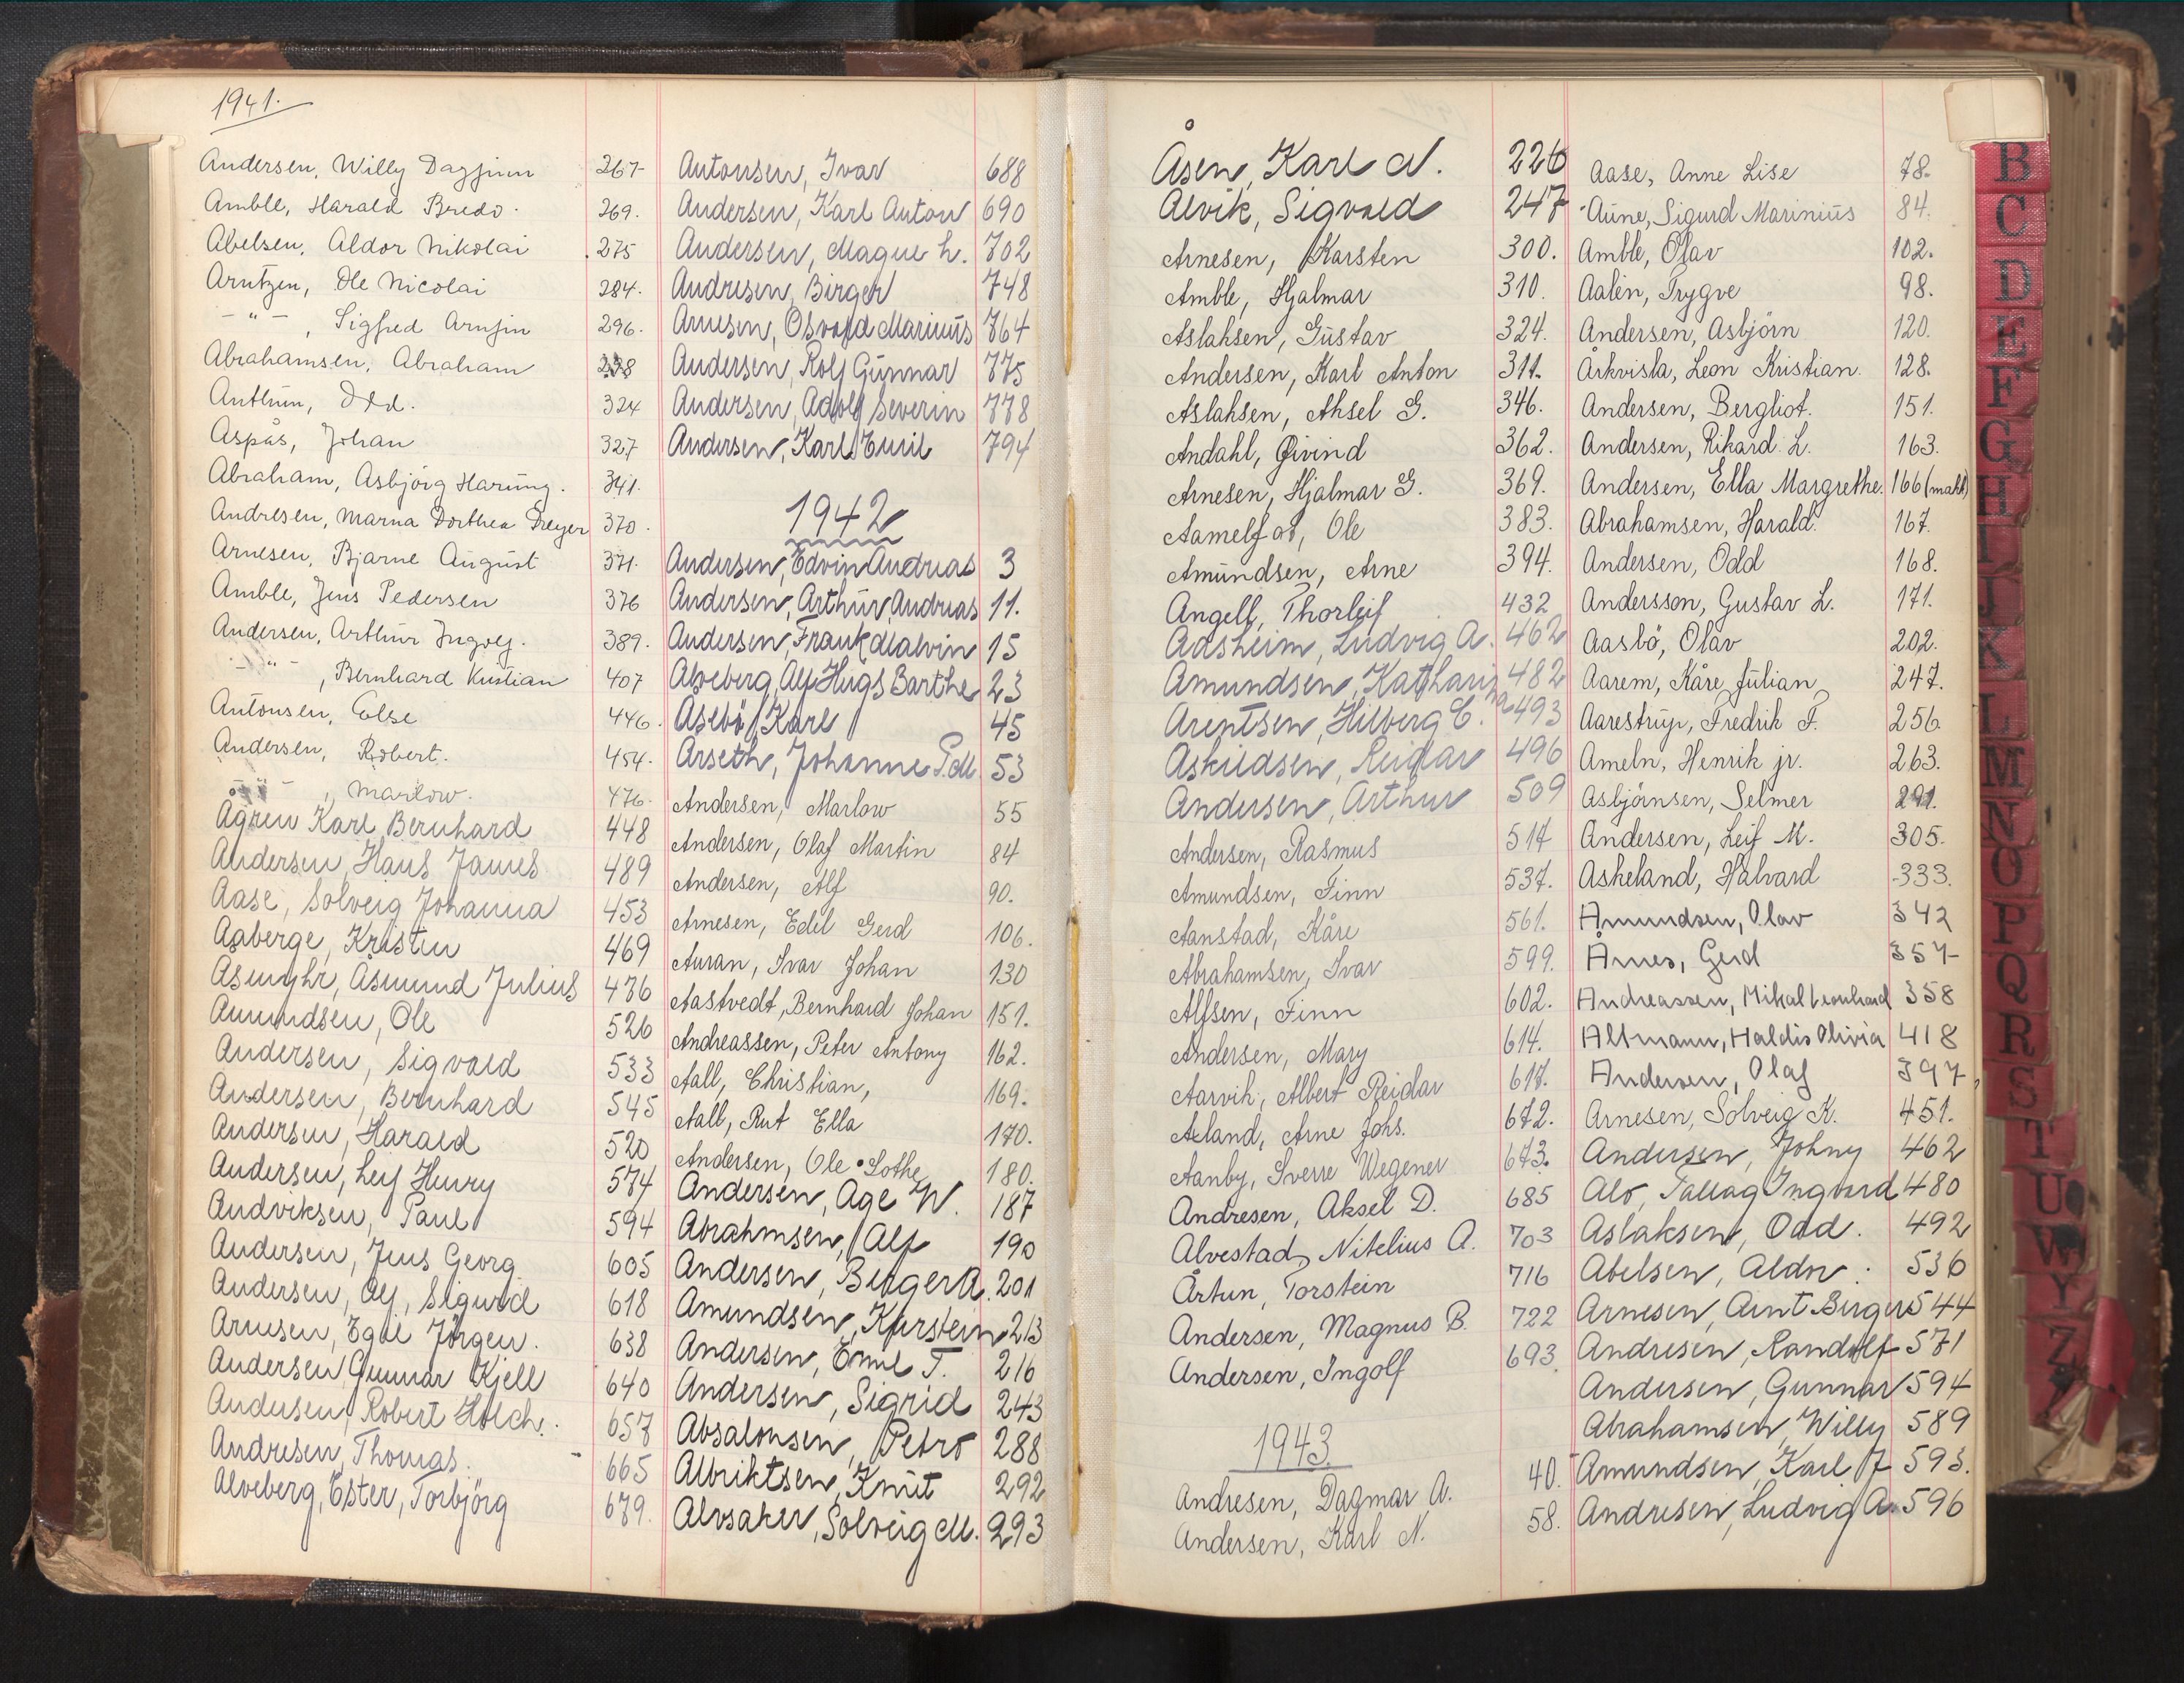 1941.
Andersen, Willy Dagfinn 267
Amble, Harald Bredo. 269.
Abelsen, Aldor Nikolai 275
Arntzen, Ole Nicolai 284.
- " - , Sigfred Arnfin 296.
Abrahamsen, Abraham
Anthun, Odd. 324
Aspås, Johan 327
Abraham, Asbjörg Haring. 341.
Andresen, Marna Dorthea Dreyer 370.
Arnesen, Bjarne August 371.
Amble, Jens Pedersen 376
Andersen, Arthur Ingolf. 389.
- " - , Bernhard Kristian 407
Antonsen, Else 446.
Andersen, Robert. 454.
- " - , Marlow. 476.
Ågren Karl Bernhard 448
Andersen, Hans James 489
Aase, Solveig Johanna 453
Aaberge, Kristen 469
Åsmund Julius 476
Amundsen, Ole 526
Andersen, Sigvald 533
Andersen, Bernhard 545
Andersen, Harald 520
Andersen, Leif Henry 574
Andviksen, Paul 594
Andersen, Jens Georg 605
Andersen, Alf, Sigurd 618
Arnesen, Egil Jörgen. 638
Andersen Gunnar Kjell 640
Andersen, Robert Holch. 657
Andresen, Thomas. 665
Alveberg, Ester, Torbjörg 679.
Antonsen, Ivar 688
Andersen, Karl Anton 690
Andersen, Magne L. 702
Andresen, Birger 748
Arnesen, Osvald Marinus 764
Andersen, Rolf Gunnar 775
Andersen, Adolf Severin 778
Andersen, Karl Emil 794
1942
Andersen, Edvin Andreas 3
Andersen, Arthur Andreas 11.
Andersen, Frank Malvin 15
Alveberg, Alf Hugs Barthe 23
Åsebö, Karl 45
Årseth, Johanne P.M. 53
Andersen, Marlow 55
Andersen, Olaf Martin 84
Andersen, Alf 90.
Arnesen, Edel Gerd 106.
Auran, Ivar Johan 130
Aastvedt, Bernhard Johan 151.
Andreassen, Peter Antony 162.
Aall, Christian, 169.
Aall, Rut Ella 170.
Andersen, Ole Lothe 180.
Andersen, Åge W. 187
Abrahmsen, Alf 190
Andersen, Birger A. 201
Amundsen, Karstein 213
Andersen, Emil T. 216
Andersen, Sigrid 243
Absalonsen, Petro 288
Albriktsen, Knut 292
Alvsaker, Solveig M. 293
Åsen, Karl N. 226
Alvik, Sigvald 247
Arnesen, Karsten 300.
Amble, Hjalmar 310.
Aslaksen, Gustav 324.
Andersen, Karl Anton 311.
Aslaksen, Aksel G. 346.
Andahl, Øivind 362.
Arnesen, Hjalmar G. 369.
Aamelfot, Ole 383.
Amundsen, Arne 394.
Angell, Thorleif 432
Aadsheim, Ludvig A. 462
Amundsen, Katharina 482
Arentsen, Hilberg C. 493
Askildsen, Reidar 496
Andersen, Arthur 509
Andersen, Rasmus 517
Amundsen, Finn 537.
Aanstad, Kåre 561.
Abrahamsen, Ivar 599.
Alfsen, Finn 602.
Andersen, Mary 614.
Aarvik, Albert Reidar 617.
Aland, Arne Johs. 672.
Aanby, Sverre Wegener 673.
Andresen, Aksel D. 685
Alvestad, Nitelius A. 703
Årtun, Torstein 716
Andersen, Magnus B. 722
Andersen, Ingolf 693.
1943.
Andresen, Dagmar A. 40.
Andersen, Karl N. 58.
Aase, Anne Lise 78.
Aune, Sigurd Marinius 84.
Amble, Olav 102.
Aalen, Trygve 98.
Andersen, Asbjörn 120.
Årkvisla, Leon Kristian. 128.
Andersen, Bergliot. 151.
Andersen, Rikard L. 163.
Andersen, Ella Margrethe. 166 (makt)
Abrahamsen, Harald. 167.
Andersen, Odd 168.
Andersson, Gustav L. 171.
Aasbö, Olav 202.
Aarem, Kåre Julian 247.
Aarestrup, Fredrik F. 256.
Ameln, Henrik jr. 263.
Asbjörnsen, Selmer 291.
Andersen, Leif M. 305.
Askeland, Halvard 333.
Amundsen, Olav 342
Årnes, Gerd 357
Andreassen, Mikal Leonhard 358
Altmann, Haldis Olivia 418
Andersen, Olaf 397
Arnesen, Solveig K. 451.
Andersen, Johny 462
Alo, Tallag Ingvard 480
Aslaksen, Odd. 492
Abelsen, Aldor. 536
Arnesen, Arnt Birger 544
Andresen, Randolf 571
Andersen, Gunnar 594
Abrahamsen, Willy 589
Amundsen, Karl J 593.
Andresen, Ludvig A. 596
B
C
D
E
F
G
H
I
J
K
L
M
N
O
P
Q
R
S
T
U
W
Y
Z